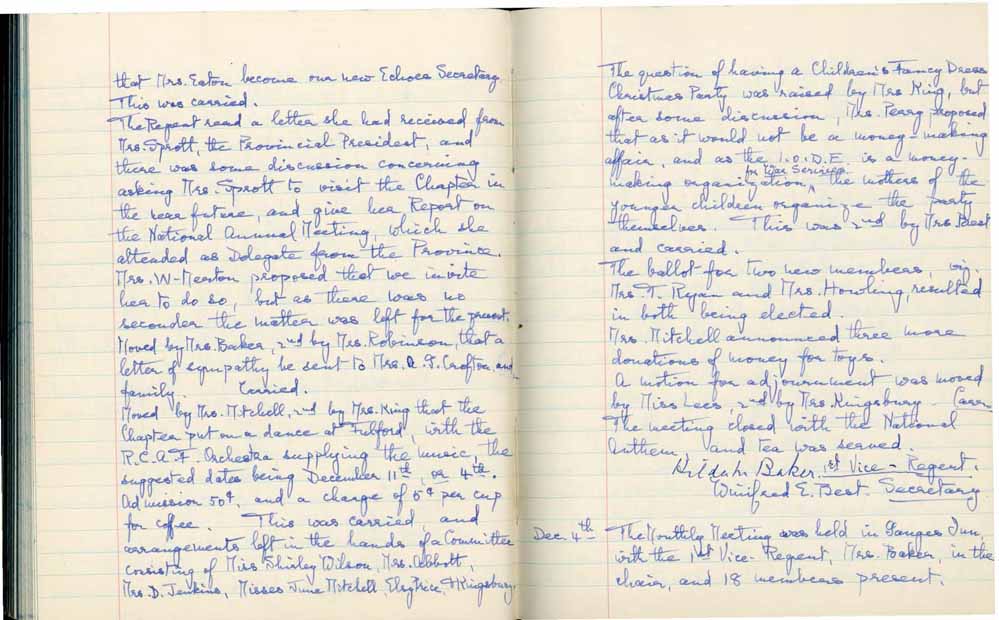 that Mrs. Eaton become our new Echoes Secretary.
This was carried.
The Regent read a letter she had received from
Mrs. Sprott, the Provincial President, and
there was some discussion concerning
asking Mrs. Sprott to visit the Chapter in
the near future, and give her Report on
the National Annual Meeting, which she
attended as Delegate from the Province.
Mrs. W-Menton proposed that we invite
her to do so, but as there was no
seconder the matter was left for the present.
Moved by Mrs. Baker, 2nd by Mrs. Robinson, that a
letter of sympathy be sent to Mrs. A. J. Crofton and
family. Carried.
Moved by Mrs. Mitchell, 2nd by Mrs. King that the
Chapter put on a dance at Fulford, with the
R.C.A.F. Orchestra supplying the music, the
suggested dates being December 11th, or 4th.
Admission 50¢, and a charge of 5¢ per cup
for coffee. This was carried, and
arrangements left in the hands of a Committee
consisting of Miss Shirley Wilson, Mrs. Abbott,
Mrs. D. Jenkins, Misses June Mitchell, Price, & Kingsbury.
The question of having a Children's Fancy Dress
Christmas Party was raised by Mrs King, but
after some discussion, Mrs. Perry proposed
that as it would not be a money-making
affair, and as the I.O.D.E. is a money-
for War Services
making organization, the mothers of the
younger children organize the party
themselves. This was 2nd by Mrs Best
and carried.
The ballot for two new members, viz.
Mrs. T. Ryan and Mrs. Howling, resulted
in both being elected.
Mrs. Mitchell announced three more
donations of money for toys.
A motion for adjournment was moved
by Miss Lees, 2nd by Mrs. Kingsbury –
The meeting closed with the National
Anthem and tea was served.
Baker, 1st Vice-Regent.
Winifred E. Best. Secretary.
Dec. 4th The Monthly Meeting was held in Ganges Inn,
with the 1st Vice-Regent, Mrs. Baker, in the
chair, and 18 members present.